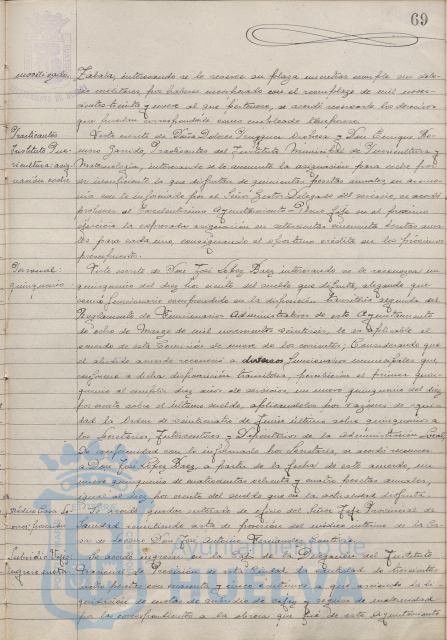 69
movilizado. Zabala, interesando se le reserve su plaza mientras cumple sus debe-
res militares, por haberse incorporado con el reemplazo de mil nove-
cientos treinta y nueve al que pertenece, se acordó reconocerle los derechos
que puedan corresponderle como empleado temporero.
Practicantes Visto escrito de Doña Dolores y Don Enrique Ro-
Instituto Pue- mero Garrido, Practicantes del Instituto Municipal de Puericultura y
ricultura: asig- Maternología, interesando se le aumente la asignación para coche por
nación coche. ser insuficiente la que disfrutan de quinientas pesetas anuales, en armo-
nía con lo informado por el Señor Gestor Delegado del servicio, se acordó
proponer al Excelentísimo Ayuntamiento Pleno fije en el próximo
ejercicio la expresada asignación en setecientas cincuenta pesetas anua-
les para cada uno, consignando el oportuno crédito en los próximos
presupuestos.
Personal: Visto escrito de Don José López Báez interesando se le reconozca un
quinquenio. quinquenio del diez por ciento del sueldo que disfruta, alegando que
como funcionario comprendido en la disposición transitoria segunda del
Reglamento de Funcionarios Administrativos de este Ayuntamiento
de ocho de Marzo de mil novecientos veintiséis, le es aplicable el
acuerdo de esta Comisión de nueve de los corrientes; Considerando que
el aludido acuerdo reconoció a diversos funcionarios municipales que
conforme a dicha disposición transitoria, percibieron el primer quin-
quenio al cumplir diez años de servicios, un nuevo quinquenio del diez
por ciento sobre el último sueldo, aplicándoles por razones de equi-
dad la Orden de veinticuatro de Junio último sobre quinquenios a
los Secretarios, Interventores y Depositarios de la Administración Local,
de conformidad con lo informado por Secretaría, se acordó reconocer
a Don José López Báez, a partir de la fecha de este acuerdo, un
nuevo quinquenio de cuatrocientas ochenta y cuatro pesetas anuales,
igual al diez por ciento del sueldo que en la actualidad disfruta.
Médico Casa So- Se acordó quedar enterado de oficio del Señor Jefe Provincial de
corro: posesión Sanidad remitiendo acta de posesión del médico interino de la Ca-
sa de Socorro Don José Antonio Fernández
Subsidio Vejez: Se acordó ingresar en la Caja de la Delegación del Instituto
ingreso cuotas Nacional de Previsión de esta Ciudad la cantidad de trescientas
cuatro pesetas con cuarenta y cinco céntimos a que asciende la li-
quidación de cuotas de subsidio de vejez y seguro de maternidad
por las correspondientes a la obrería que fué de este Ayuntamiento
Ayuntamiento de
HUELVA